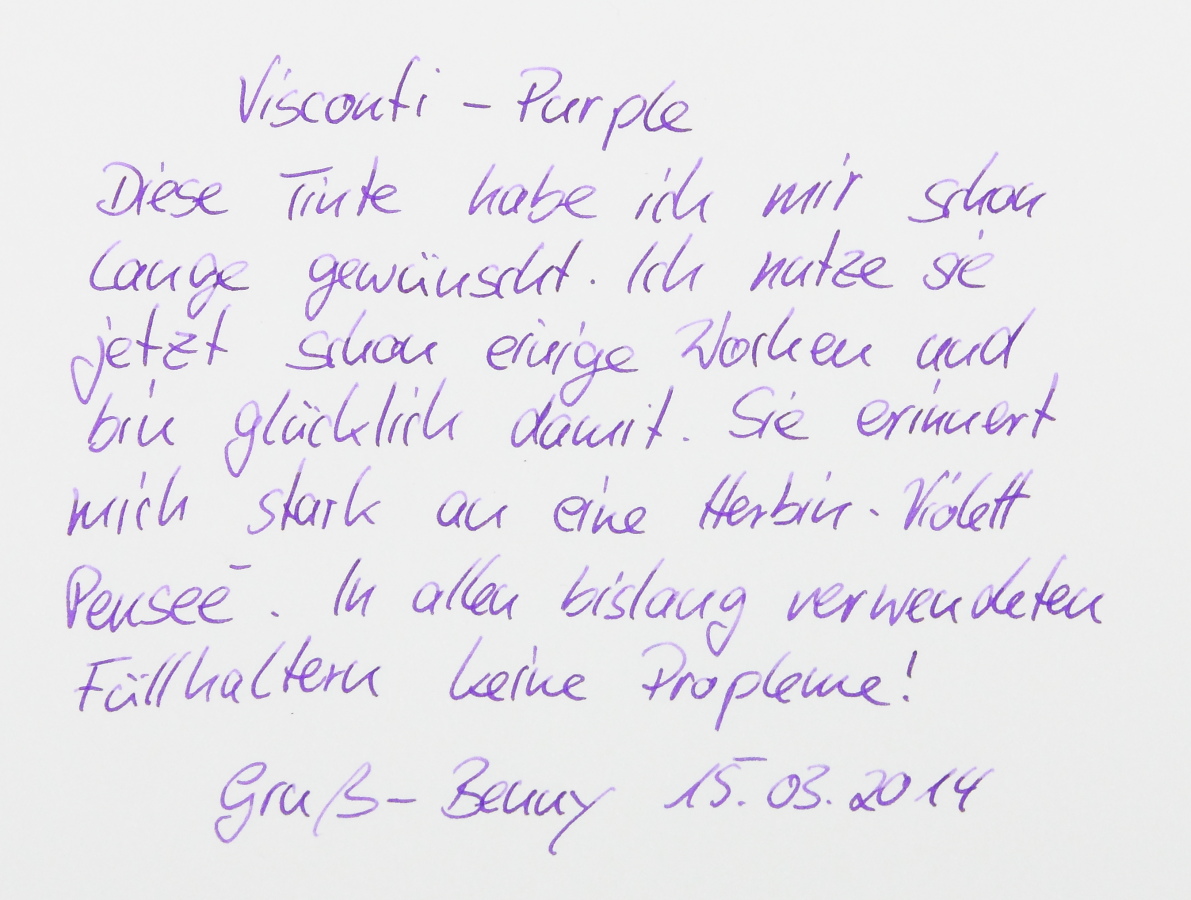 Visconti - Purple
Diese Tinte habe ich mir schon
lange gewünscht. Ich nutze sie
jetzt schon einige Wochen und
bin glücklich damit. Sie erinnert
mich stark an eine Herbin - Violett
Penseé. In allen bislang verwendeten
Füllhaltern keine Propleme!
Gruß - Benny 15.03.2014